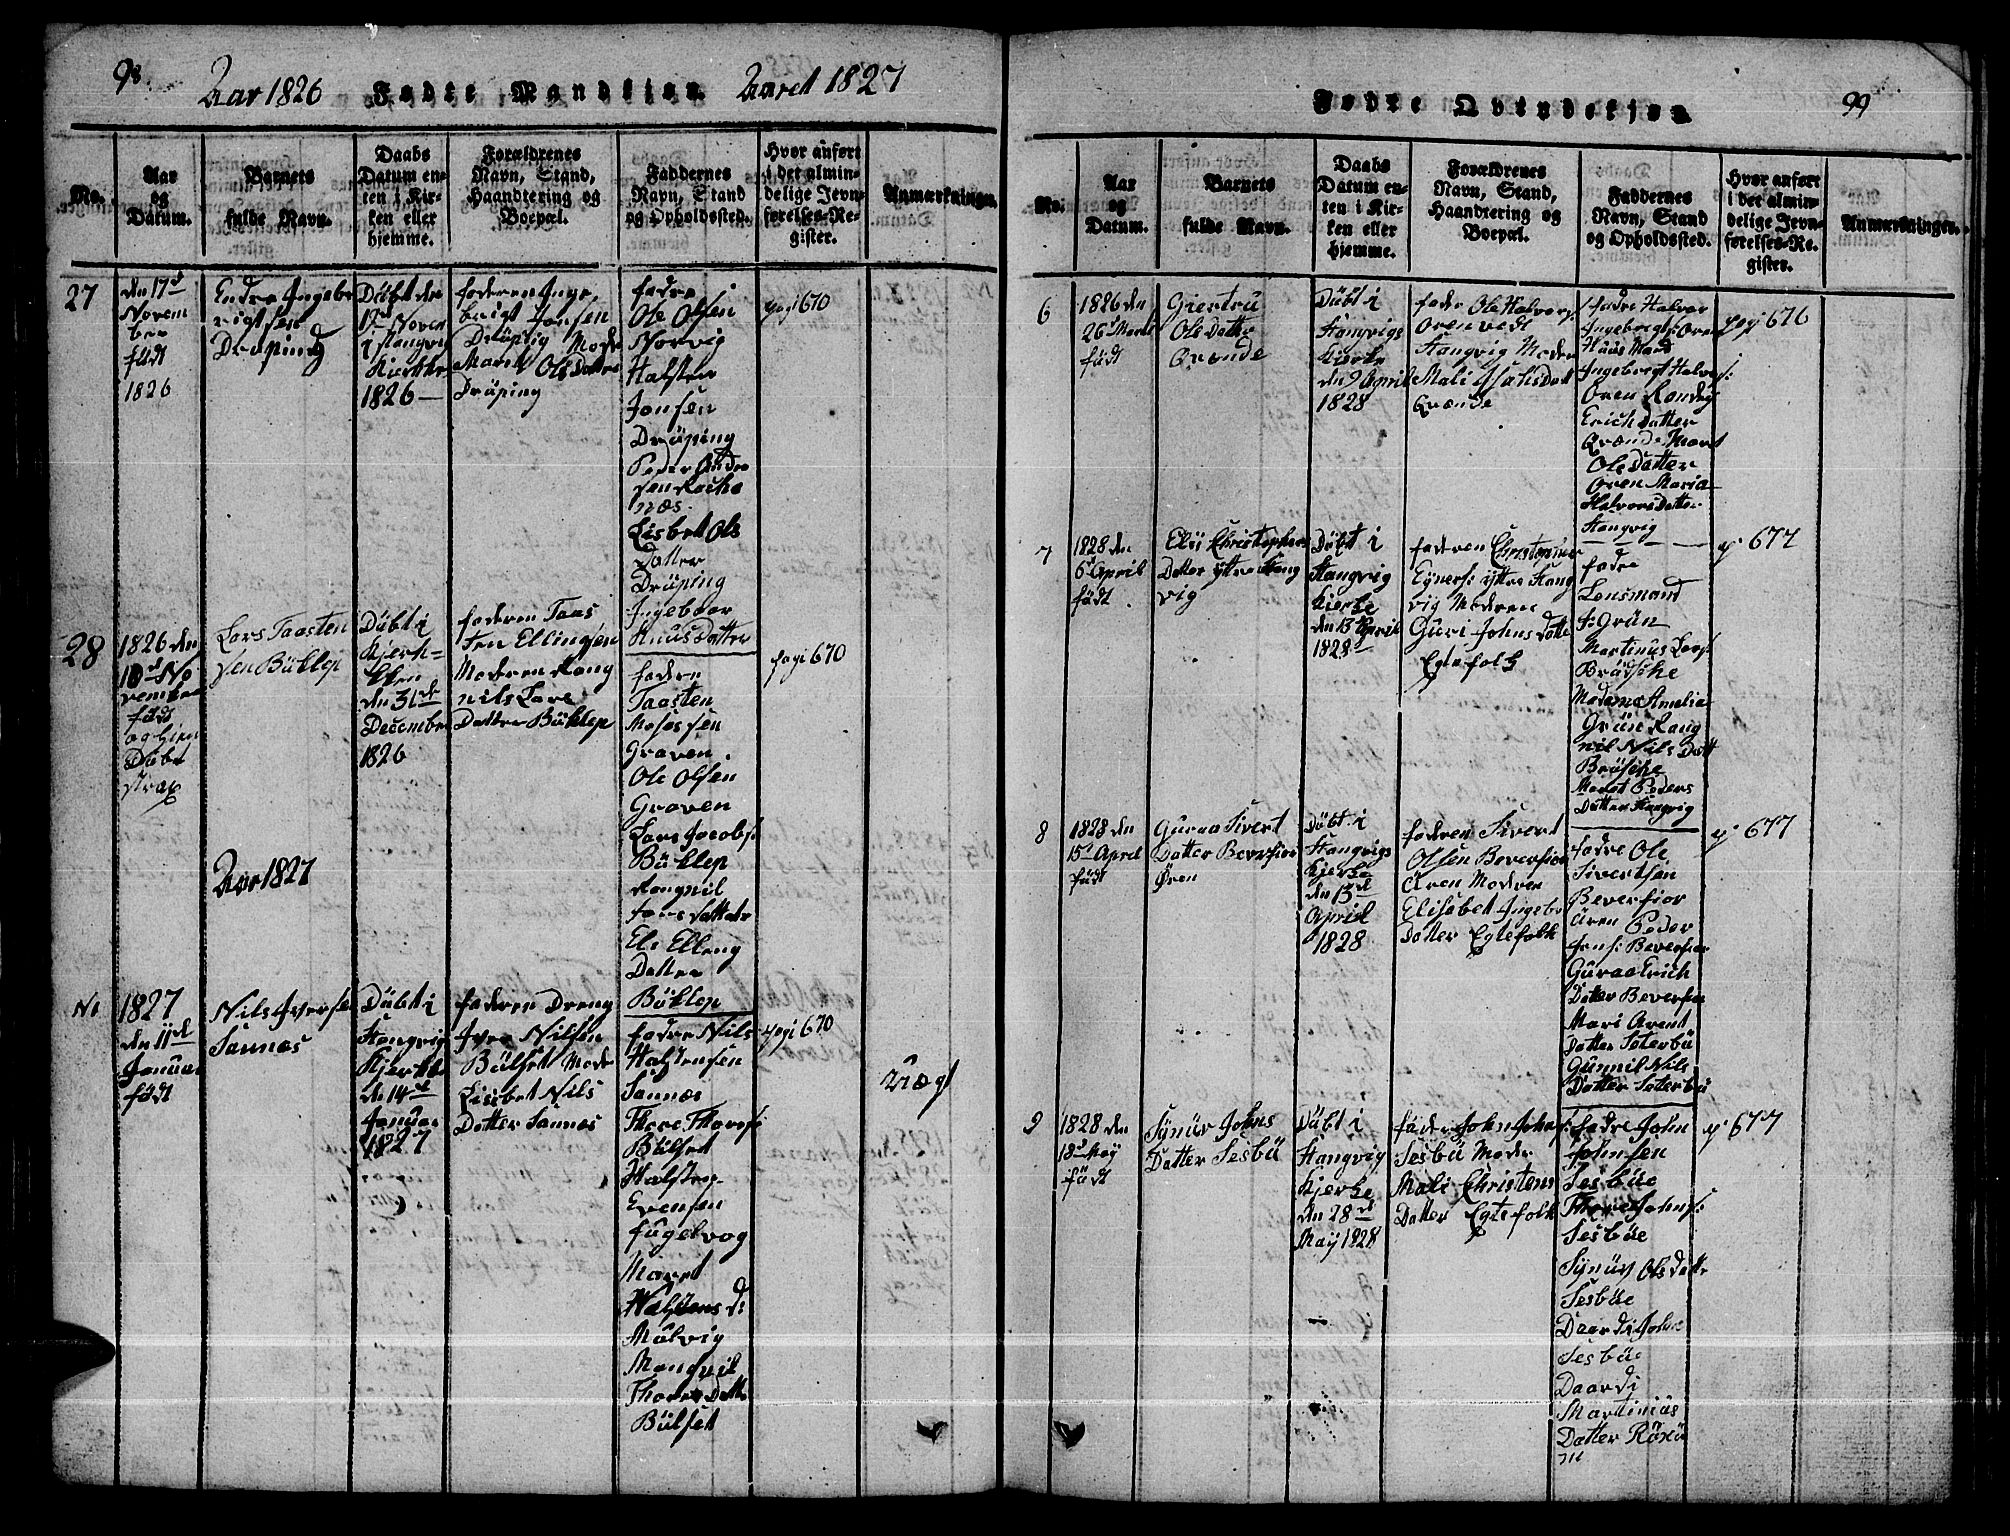 98
Aar 1826 Fødte Mandkjøn. Aaret 1827
No.
Aar
og
Datum.
Barnets
fulde Navn.
Daabs
Datum en-
ten i Kir-
ken eller
hjemme.
Forældrenes
Navn, Stand,
Haandtering og
Boepæl.
Faddernes
Navn, Stand
og Opholdssted.
Hvor anført
i det almin-
delige Jevn-
førelses-Re-
gister.
Anmærkninger.
27
den 17d
Novem
ber
født
1826
Endre Ingebr
rigtsen
Drøping
Døbt den
Novem
i Stangvig
Kirkke
1826
faderen Inge
brigt Jonsen
Drøping Moder
Marit Ols Datter
Drøping
fadre
Ole Olsen
Norvig
Halsten
Jonsen
Drøping
Peder Andre
sen
næs.
Lisbet Ols
Datter
Drøping
Ingeboor
Knus Datter
pagi 670
28
1826 den
10d No
vember
født
og hiem
Døbt
strax
Lars Taasten
sen Bøklep
Døbt i
Kjerk=
ken
den 31de
December
1826
faderen Taas
ten Ellingsen
Moderen Rang
nil Lars
Datter Bøklep
fadren
Taasten
Mosessen
Graven
Ole Olsen
Graven
Lars Jacobs:
Bøklep
Rangnil
Lars Datter
Els Elleng
Datter
Bøklep
pagi 670
Aar 1827
N1
1827
den 11de
Januar
født
Nils Iversen
Sannæs
Døbt i
Stangvig
Kjerkke
den 14de
Januar
1827
faderen Dreng
Iver Nilsen
Bølset Moder
Lisbet Nils
Datter Sannæs
fadre Nils
Halstensen
Sannæs
Thore Thores:
Bølset
Halsten
Evensen
Fugelvog
Maret
Halstens d:
Mølvig
Thores Datter
Bølset
pagi 670
Uægt
Fødte Qvindekjøn. 99
No.
Aar
og
Datum.
Barnets
fulde Navn.
Daabs
Datum en-
ten i Kir-
ken eller
hjemme.
Forældrenes
Navn, Stand,
Haandtering og
Boepæl.
Faddernes
Navn, Stand
og Opholdssted.
Hvor anført
i det almin-
delige Jevn-
førelses-Re-
gister.
Anmærkninger.
6
1826 den
26d Marti
født
Giertru
Ols Datter
Qvande
Døbt i
Stangvigs
Kjerke
den 9 April
1828
fader Ole Halvors:
Oren vedt
Stangvig Moder
Mali Datt
Qvande
fadre Halvor
Ingebrigts: Oren
Huus Mand
Ingebrigt Halvors:
Oren Randi
Erich Datter
Qvande Mart
Ols Datter
Oren Maria
Halvors Datter
Stangvig
pagi 676
7
1828 den
6d April
født.
Eli Christopher
Datter ytre Stang
vig
Døbt i
Stangvig
Kjerke
den 13 April
1828
faderen Christopher
Eyners: ytre Stang
vig Moderen
Guri Johns Datte
Egtefolk
fadre
Lensmand
F: Grün
Martinus Lars:
Brøske
Madame Amelia
Grüne Rang
nil Nils Datt
Brøske
Maret Peders
Datter Stangvig
p: 677
8
1828 den
15d April
født
Guraa Sivert
Datter Beverfior
Øren
Døbt i
Stangvigs
Kjerke
den 13de
April
1828
fadren Sivert
Olsen Beverfior
Øren Moder
Elisabet Ingebr
Datter Egtefolk
fadre Ole
Sivertsen
Beverfior
Øren Peder
Jens: Beverfior
Guraa Erich
Datter Beverfior
Mari Arent
Datter Seterbø
Gunnil Nils
Datter Seterbø
p: 677
9
1828 den
18d May
født
Synüv Johns
Datter Sesbø
Døbt i
Stangvig
Kjerke
den 28de
May 1828
fader John Johns:
Sesbø Moder
Mali Christens
Datter Egtefolk
fadre John
Johnsen
Sesbøe
Thore Johns:
Sesbøe
Synüv Ols Datte
Sesbøe
Daardi Johns
Sesbøe
Daardi
Martinius
Datter Røxø
m
p: 677